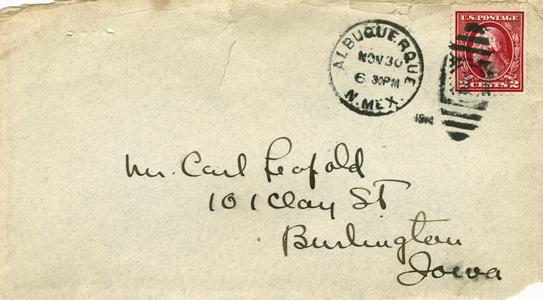 ALBUQUERQUE
NOV 30
6 30PM
N. MEX.
1914
U.S. POSTAGE
2 CENTS 2
Mr. Carl Leopold
101 Clay St
Burlington
Iowa